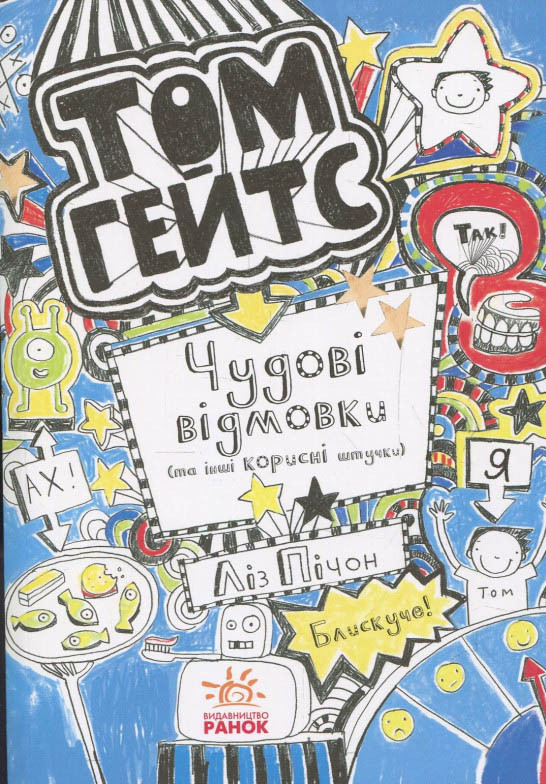 ТОМ
ГЕЙТС
ТАК!
Чудові
відмовки
(та інші корисні штучки)
АХ!
Я
Ліз Пічон
Том
Блискуче!
ВИДАВНИЦТВО
РАНОК